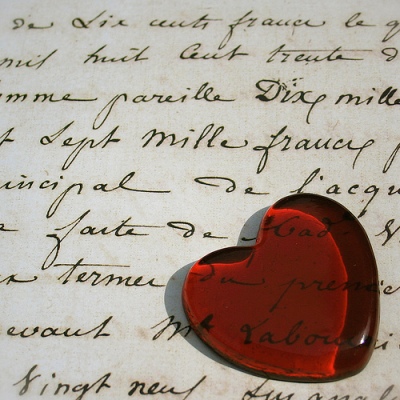 de Six cents francs le
mil huit Cent trente
somme pareille Dix mille
Sept Mille francs
principal de l'acqu
faite de Mad
termes du premier
devant Me Labou
Vingt neuf